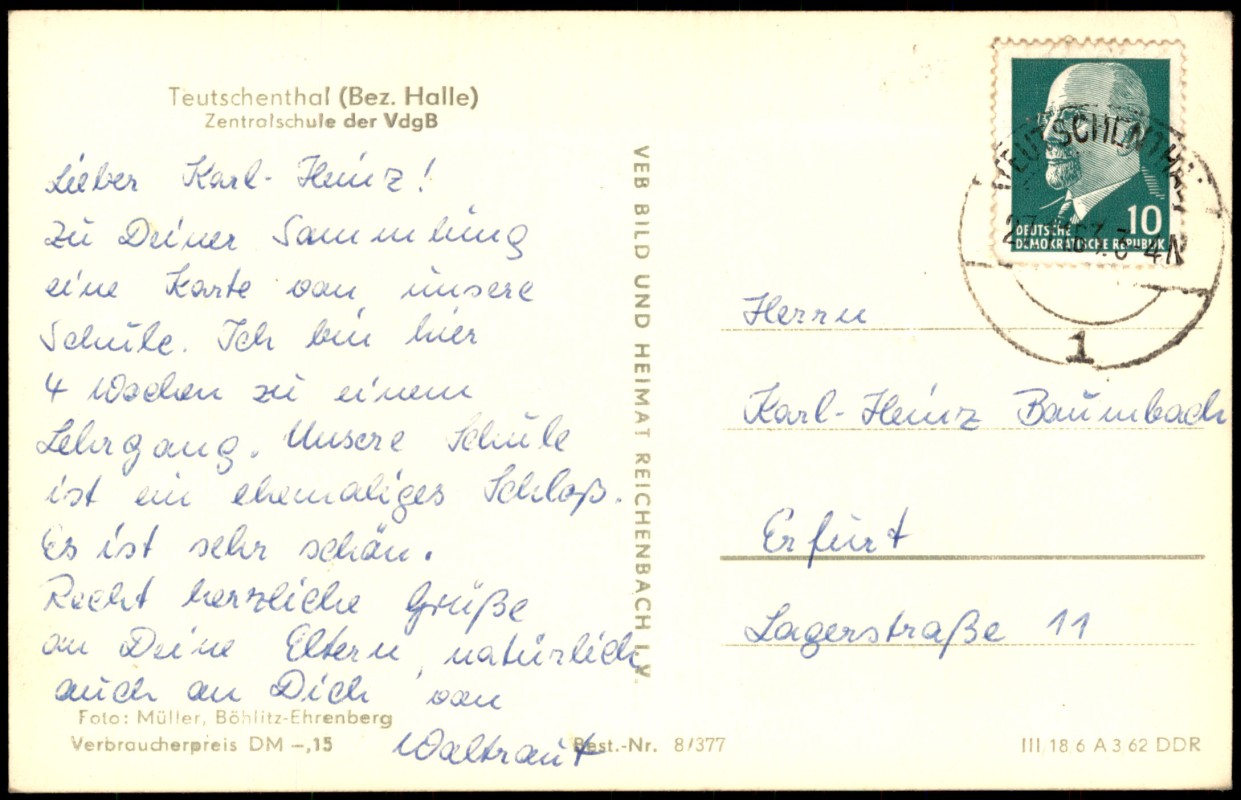 Teutschenthal (Bez. Halle)
Zentralschule der VdgB
Lieber Karl-Heinz!
Zu Deiner Sammlung
eine Karte von unsere
Schule. Ich bin hier
4 Wochen zu einem
Lehrgang. Unsere Schule
ist ein ehemaliges Schloß.
Es ist sehr schön.
Recht herzliche Grüße
an Deine Eltern, natürlich
auch an Dich von
Waltraut
Foto: Müller, Böhlitz-Ehrenberg
Verbraucherpreis DM –,15
Best.-Nr. 8/377
VEB BILD UND HEIMAT REICHENBACH I. V.
TEUTSCHENTHAL
1
10
DEUTSCHE
DEMOKRATISCHE REPUBLIK
Herrn
Karl-Heinz Baumbach
Erfurt
Lagerstraße 11
III 18 6 A 3 62 DDR